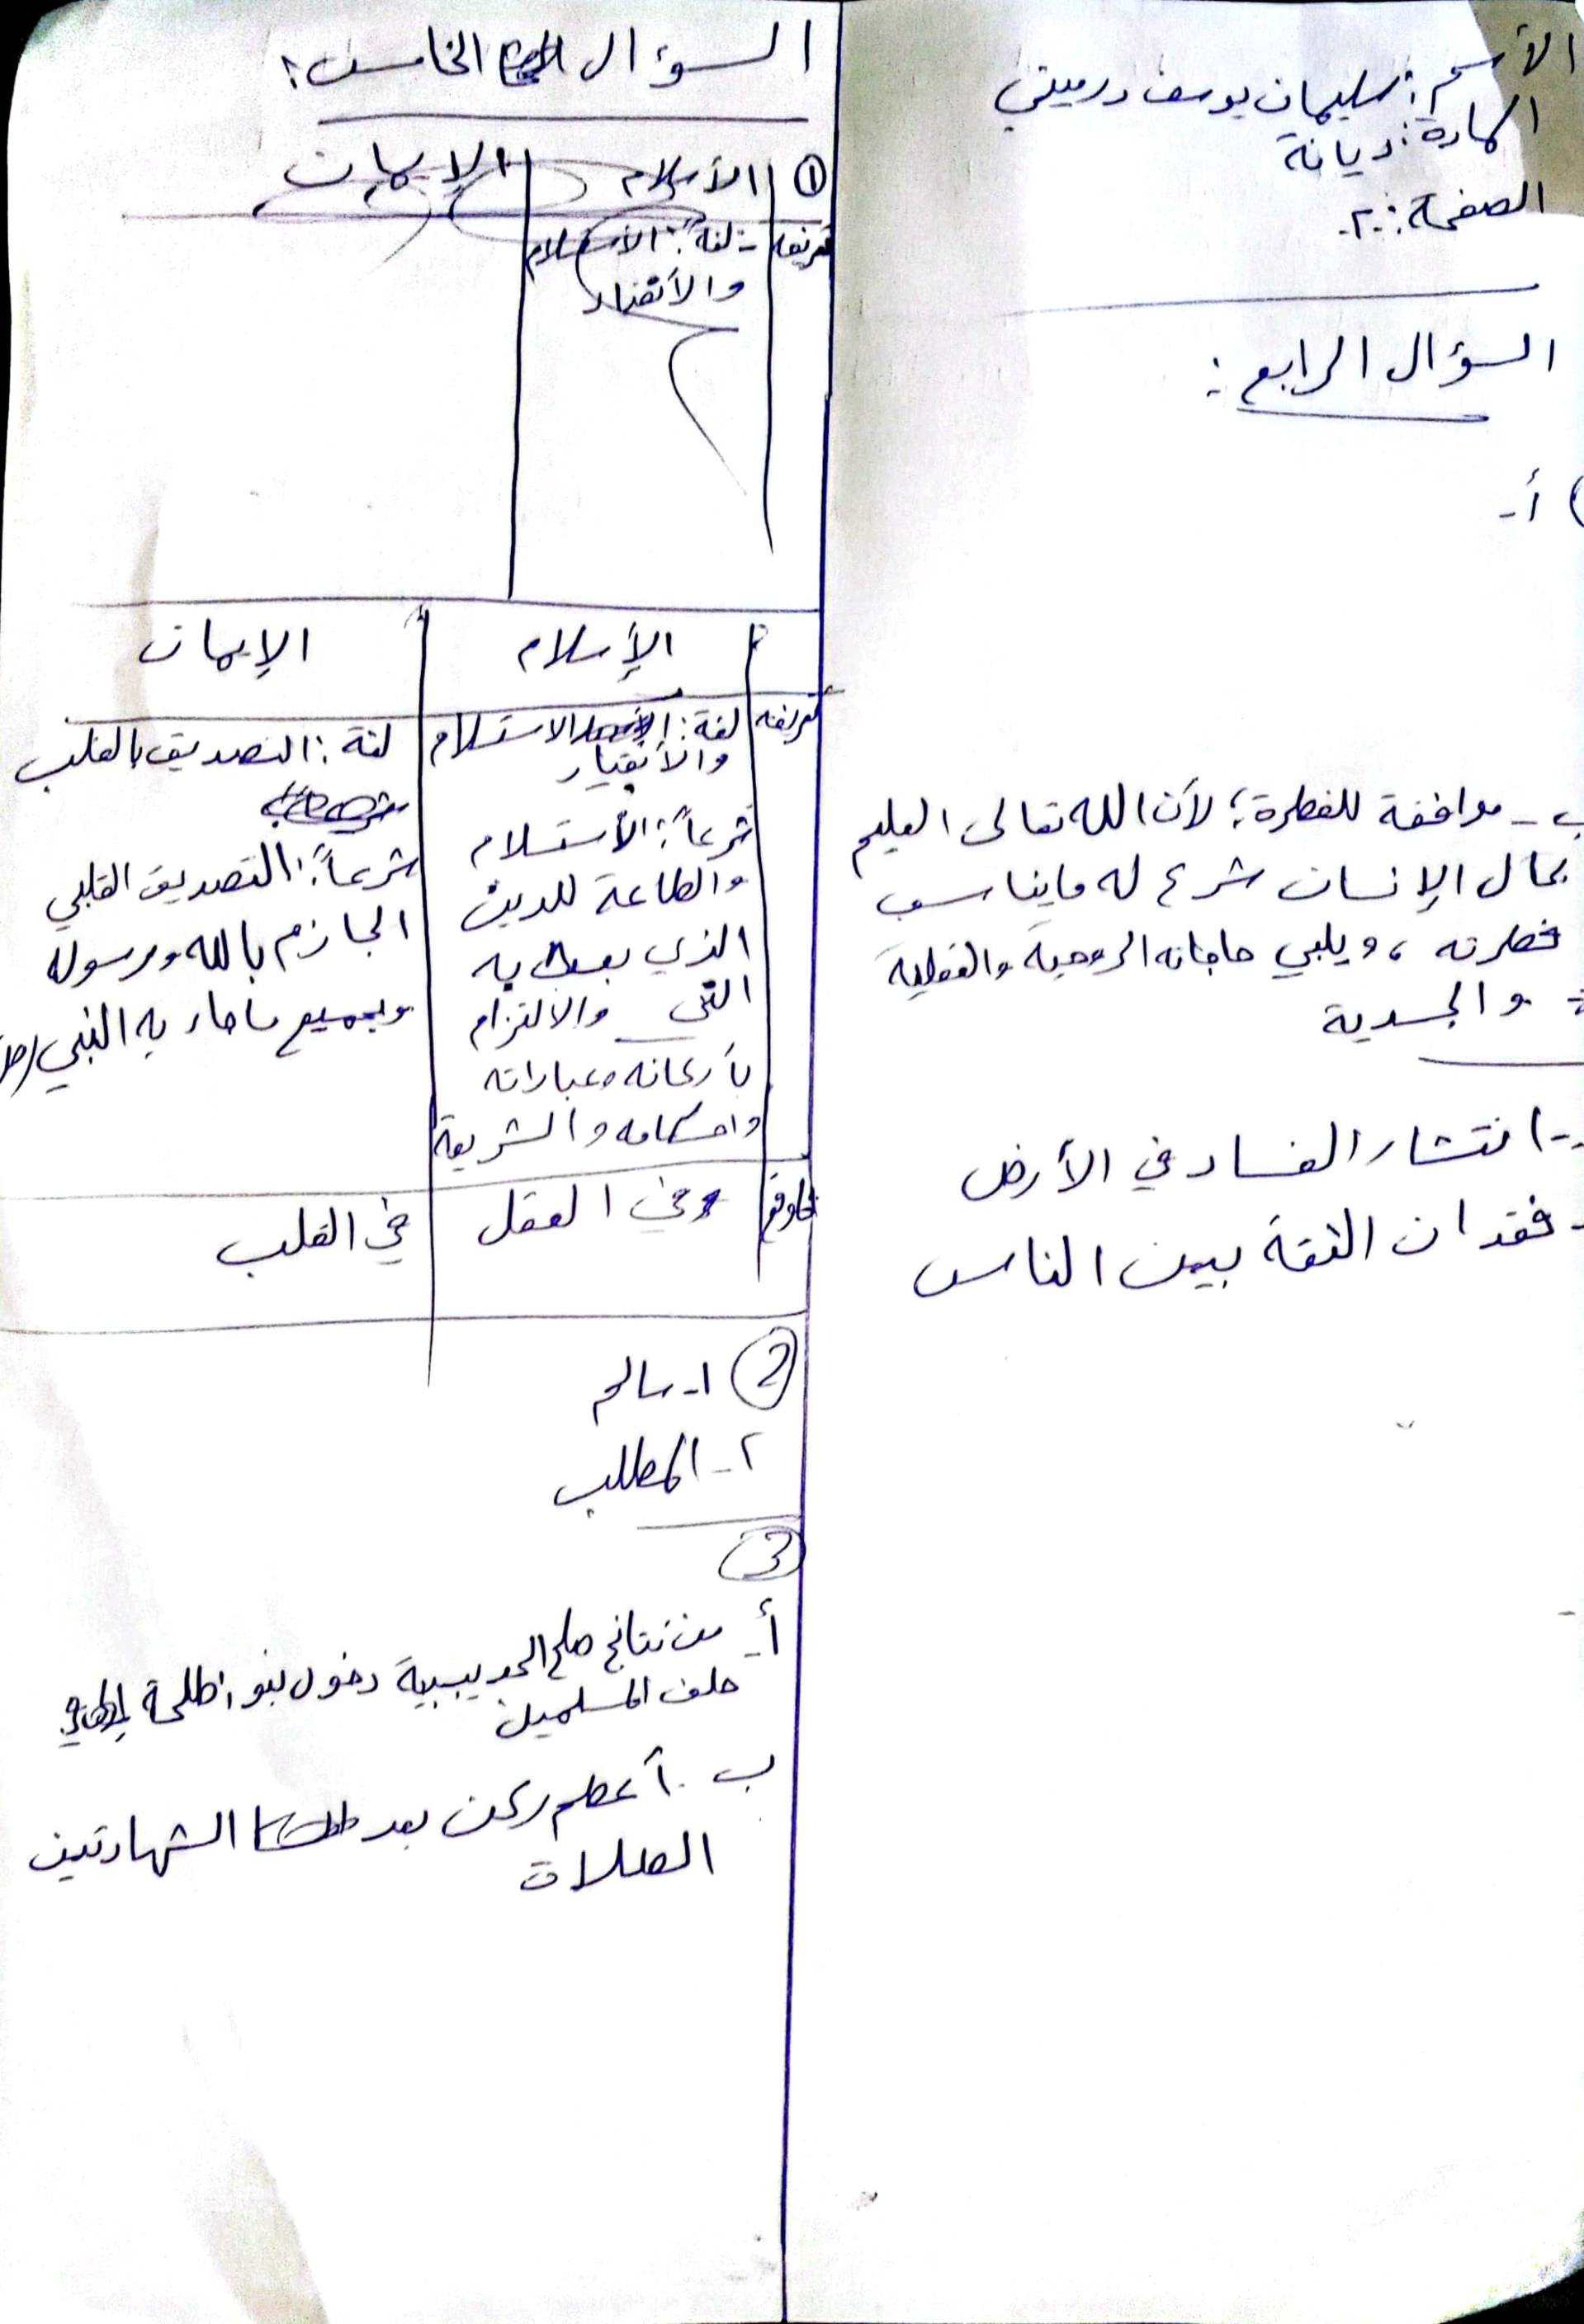 الأسم: سليمان يوسف درميني
المادة: ديانة
الصفحة: ٢.
السؤال الرابع:
أ-
ب - موافقة للفطرة؛ لأن الله تعالى العليم
بحال الإنسان شرع له ما يناسب
فطرته، ويلبي حاجاته الروحية والعقلية
والجسدية
- انتشار الفساد في الأرض
- فقدان الثقة بين الناس
السؤال الخامس:
① الأسلام الإيمان
تعريفه - لغة: الأستسلام
والأنقياد
الإسلام الإيمان
تعريفه لغة: الاستسلام لغة: التصديق بالقلب
والأنقياد
شرعاً: الأستسلام شرعاً: التصديق القلبي
والطاعة للدين الجازم بالله ورسوله
الذي به وبجميع ما جاء به النبي (ص
والالتزام
بأركانه وعباداته
واحكامه والشريعة
في العقل في القلب
② ١- سالم
٢- المطلب
③
أ- من نتائج صلح الحديبية دخول بنو
حلف المسلمين
ب- أعظم ركن بعد الشهادتين
الصلات